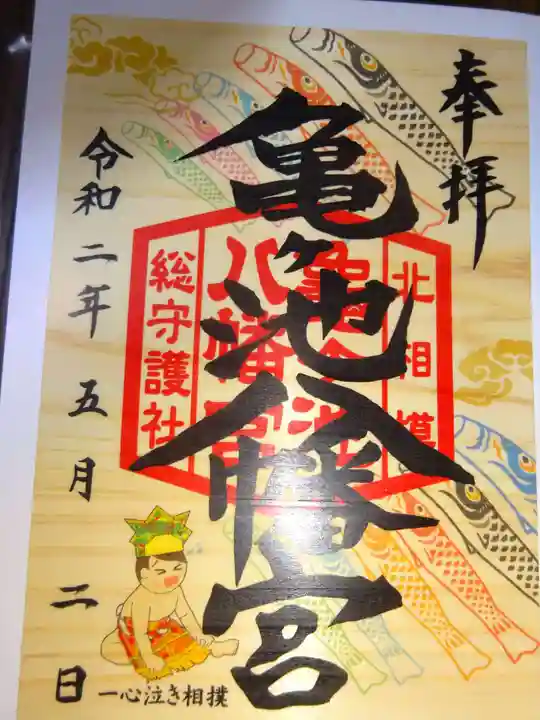 奉拝
北相模
亀ヶ池
八幡宮
総守護社
亀ヶ池八幡宮
令和二年五月二日
一心泣き相撲